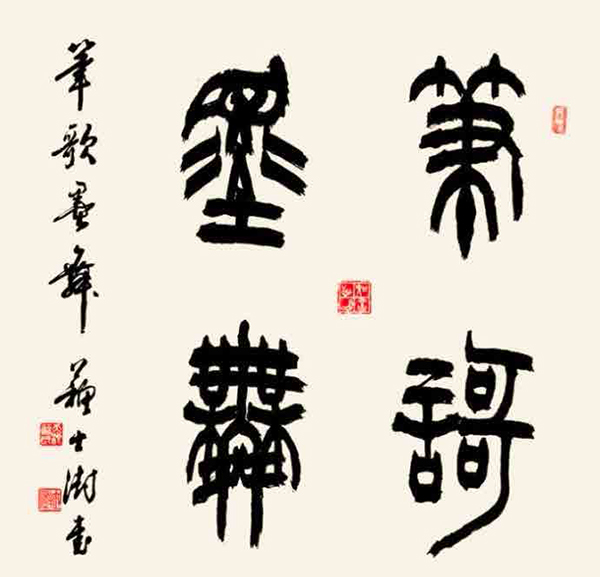 筆謌
墨舞
筆歌墨舞 蘇士澍書